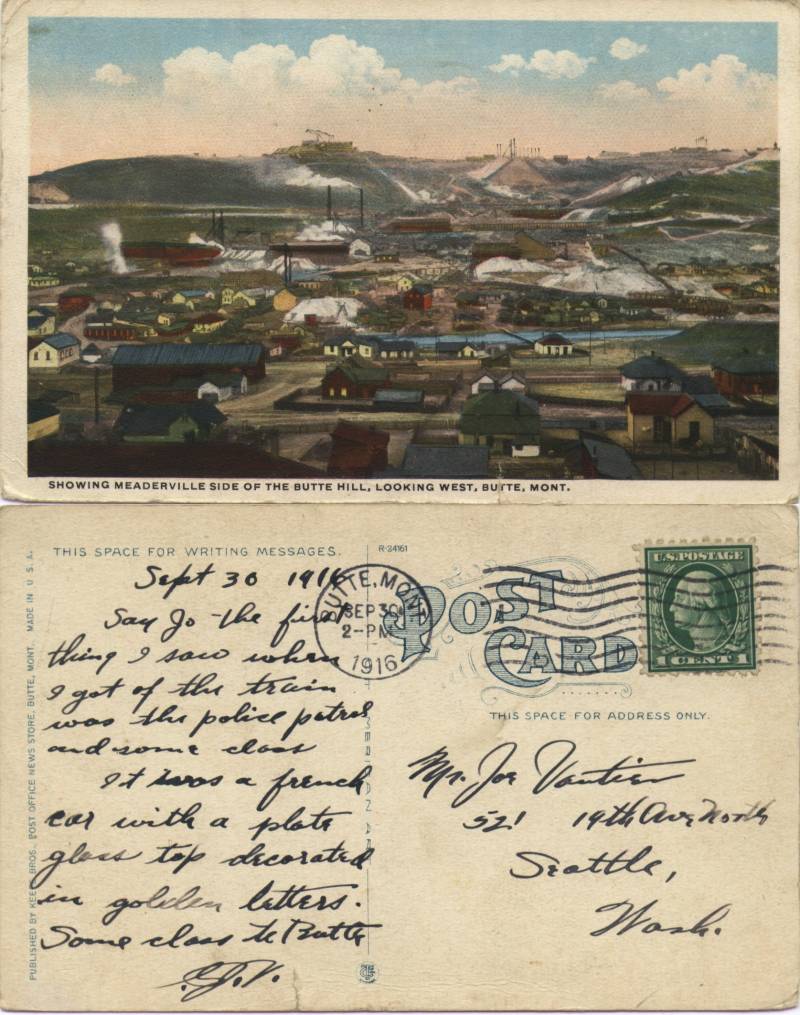 SHOWING MEADERVILLE SIDE OF THE BUTTE HILL, LOOKING WEST, BUTTE, MONT.
THIS SPACE FOR WRITING MESSAGES.
Sept 30 1916
Say Jo - the first
thing I saw when
I got of the train
was the police patrol
and some class
It was a french
car with a plate
glass top decorated
in golden letters.
Some class to Butte
PUBLISHED BY KEEFE BROS. POST OFFICE NEWS STORE, BUTTE, MONT. MADE IN U. S. A.
R-24161
BUTTE, MONT.
SEP 30
2-PM
1916
POST
CARD
U.S. POSTAGE
1 CENT 1
THIS SPACE FOR ADDRESS ONLY.
Mr. Joe Vautier
521 19th Ave North
Seattle,
Wash.